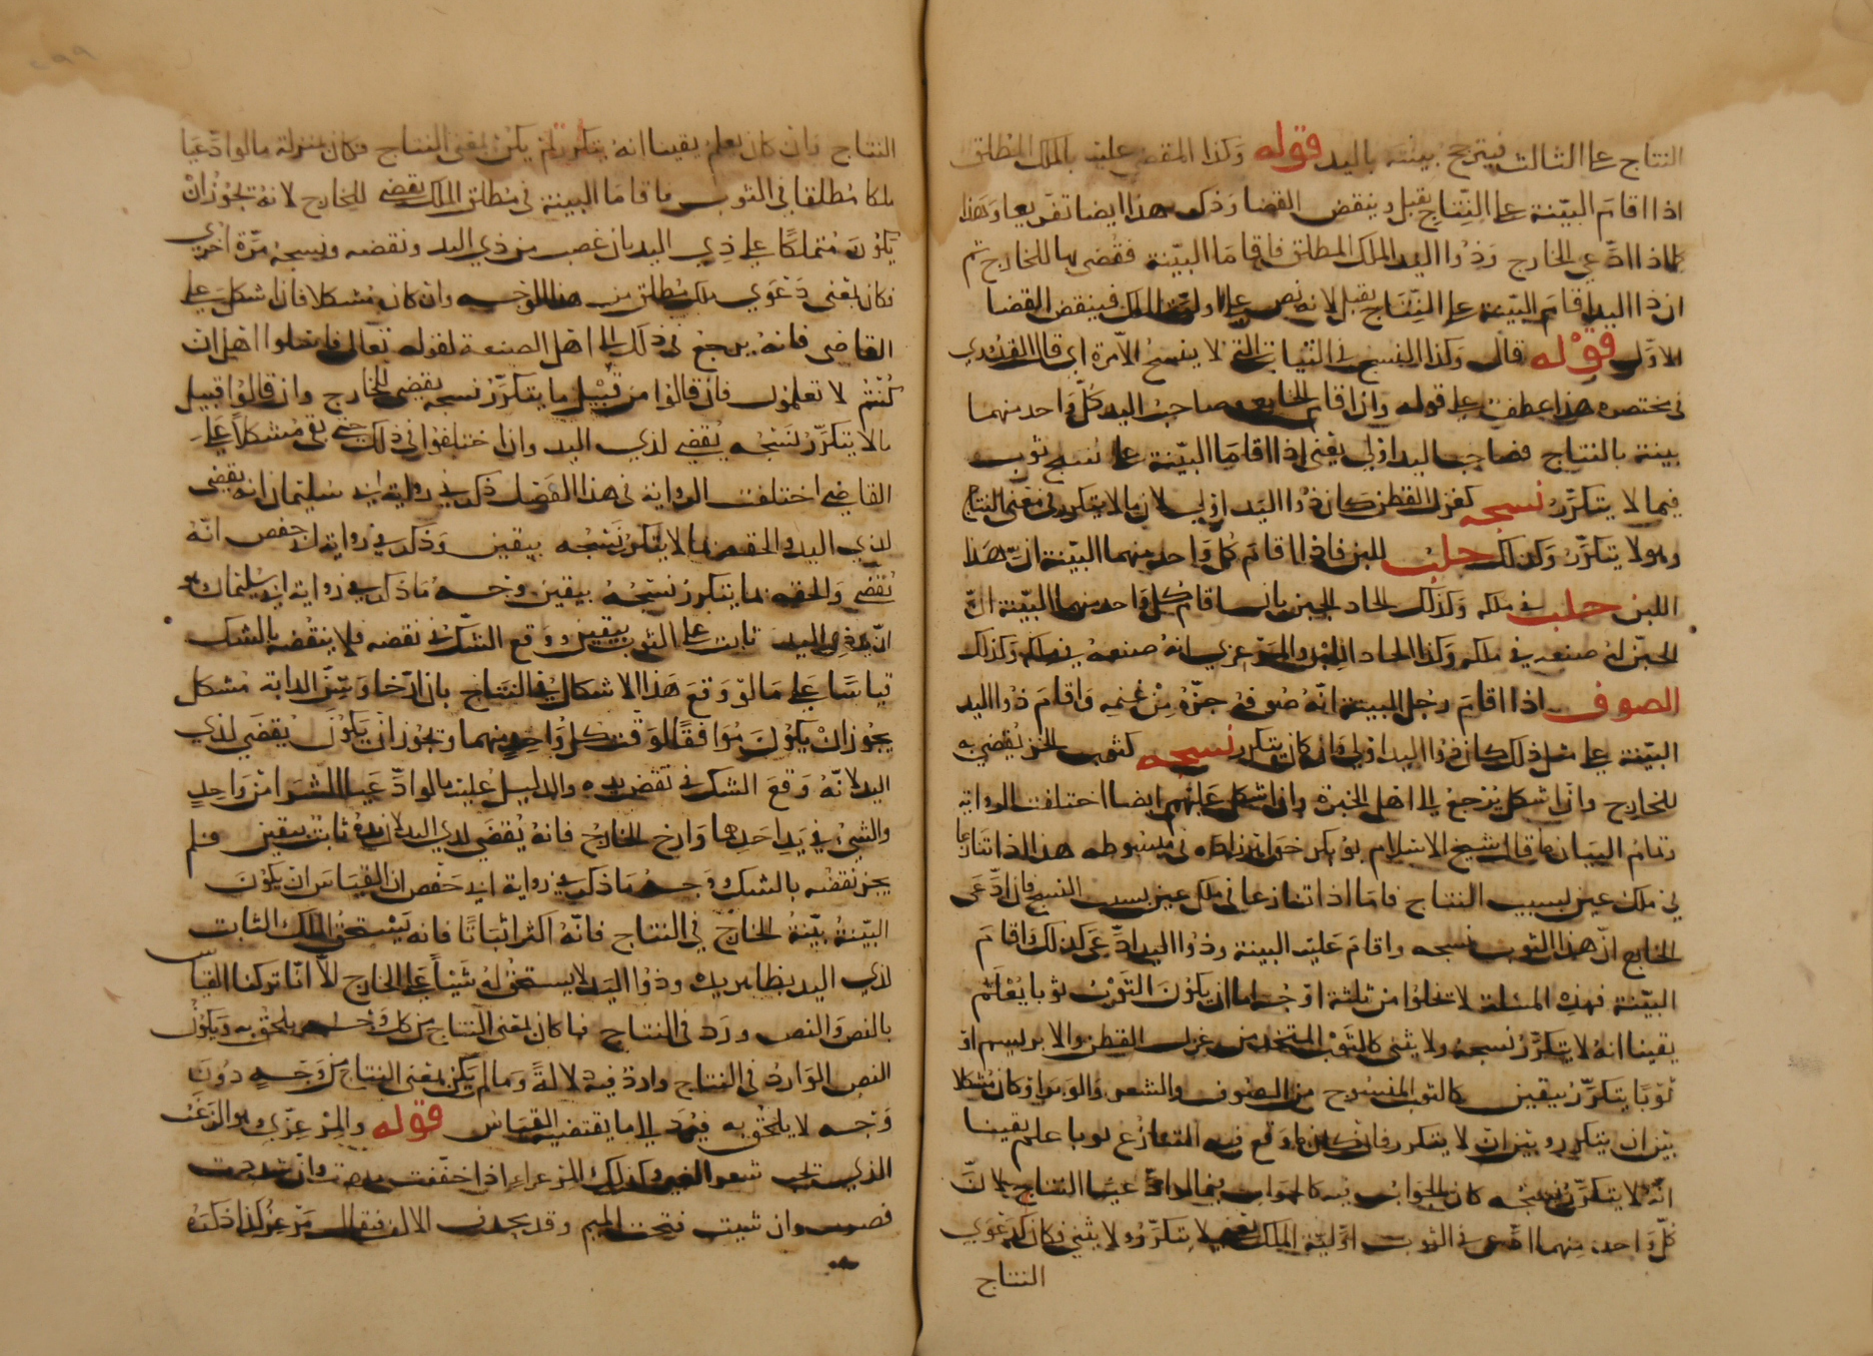 النتاج على الثالث فيترجح بينته باليد قوله وكذا المقضي عليه بالملك المطلق
اذا اقام البينة على النتاج يقبل وينقض القضا وذكر هذا ايضا تفريعا وهذا
كما اذا ادعى الخارج وذوا اليد الملك المطلق فاقاما البينة فقضى بها للخارج ثم
ان ذا اليد اقام البينة على النتاج يقبل لانه نص على اولية الملك فينقض القضا
الاول قوله قال وكذا النسج في الثياب التي لا ينسج الا مرة اي قال القدوري
في مختصره هذا عطف على قوله وان اقام الخارج وصاحب اليد كل واحد منهما
بينة بالنتاج فصاحب اليد اولى يعني اذا اقاما البينة على نسج ثوب
فيما لا يتكرر نسجه كغزل القطن كان ذوا اليد اولى لان ما لا يتكرر في معنى النتاج
وهو لا يتكرر وكذلك حلب اللبن فاذا اقام كل واحد منهما البينة ان هذا
اللبن حلب في ملكه وكذلك اتحاد الجبن بان اقام كل واحد منهما البينة ان
الجبن له صنعه في ملكه وكذا اتحاد اللبد والمرعزي بانه صنعه في ملكه وكذلك
الصوف اذا اقام رجل البينة انه صوفه جزه من غنمه واقام ذوا اليد
البينة على مثل ذلك كان ذوا اليد اولى وان كان يتكرر نسجه كثوب الخز يقضى به
للخارج وان اشكل يرجع الى اهل الخبرة وان اشكل عليهم ايضا اختلفت الرواية
وتمام البيان ما قال شيخ الاسلام بو بكر خواهر زاده في مبسوطه هذا اذا تنازعا
في ملك عين بسبب النتاج فاما اذا تنازعا في ملك عين بسبب النسج فان ادعى
الخارج ان هذا الثوب نسجه واقام عليه البينة وذوا اليد ادعى كذلك واقام
البينة فهذه المسئلة لا تخلوا من ثلثة اوجه اما ان يكون الثوب ثوبا يعلم
يقينا انه لا يتكرر نسجه ولا يثنى كالثوب المتخذ من غزل القطن والابريسم او
ثوبا يتكرر بيقين كالثوب المنسوج من الصوف والشعر والوبر او كان مشكلا
بين ان يتكرر وبين ان لا يتكرر فان كان ما وقع فيه التنازع ثوبا علم يقينا
انه لا يتكرر نسجه كان الجواب فيه كالجواب فيما لو ادعيا النتاج لان
كل واحد منهما ادعى في الثوب اولية الملك بمعنى لا يتكرر ولا يثنى فكان كدعوي
النتاج
النتاج وان كان يعلم يقينا انه يتكرر لم يكن بمعنى النتاج فكان بمنزلة ما لو ادعيا
ملكا مطلقا في الثوب واقاما البينة في مطلق الملك يقضى للخارج لانه يجوز ان
يكون متملكا على ذي اليد بان غصب من ذي اليد ونقضه ونسجه مرة اخرى
فكان بمعنى دعوي ملك مطلق من هذا الوجه وان كان مشكلا فان اشكل على
القاضي فانه يرجع في ذلك الى اهل الصنعة لقوله تعالى فاسئلوا اهل ان
كنتم لا تعلمون فان قالوا من قبيل ما يتكرر نسجه يقضى للخارج وان قالوا قبيل
ما لا يتكرر نسجه يقضى لذي اليد واذا اختلفوا في ذلك حتى بقي مشكلا على
القاضي اختلفت الرواية في هذا الفصل ذكر في رواية ابي سليمان انه يقضى
لذي اليد والحقه بما لا يتكرر نسجه بيقين وذكر في رواية ابي حفص انه
يقضي والحقه بما يتكرر نسجه بيقين وجه ما ذكر في رواية ابي سليمان
ان يد ذي اليد ثابت على الثوب بيقين ووقع الشك في نقضه فلا ينقضه بالشك
قياسا على ما لو وقع هذا الاشكال في النتاج بان ارخا وسن الدابة مشكل
يجوز ان يكون موافقا لوقت كل واحد منهما ويجوز ان يكون يقضى لذي
اليد لانه وقع الشك في نقض يده والدليل عليه ما لو ادعيا الشرا من واحد
والشي في يد احدهما وارخ الخارج فانه يقضى لذي اليد لان يده ثابت بيقين فلم
يجز نقضه بالشك وجه ما ذكر في رواية ابي حفص ان القياس ان يكون
البينة بينة الخارج في النتاج فانه اكثر اثباتا فانه يستحق الملك الثابت
لذي اليد بظاهر يده وذوا اليد لا يستحق له شيئا على الخارج الا انا تركنا القياس
بالنص والنص ورد في النتاج فما كان بمعنى النتاج من كل وجه يلحق به ويكون
النص الوارد في النتاج واردة فيه دلالة وما لم يكن بمعنى النتاج من وجه دون
وجه لا يلحق به فيرد الى ما يقتضيه القياس قوله والمرعزي وهو الزغب
الذي تحت شعر العنز وكذلك المرعزاء اذا خففت مددت وان شددت
قصرت وان شيت فتحت الميم وقد يحذف الالف فيقال مرعز كذا ذكره